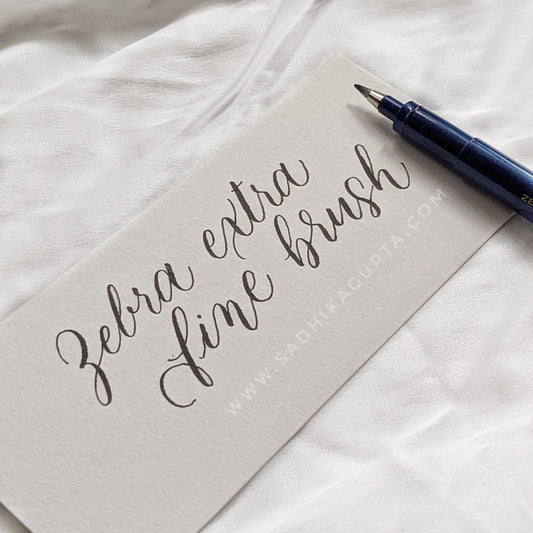 Zebra extra
fine brush
WWW.SADHIKAGUPTA.COM